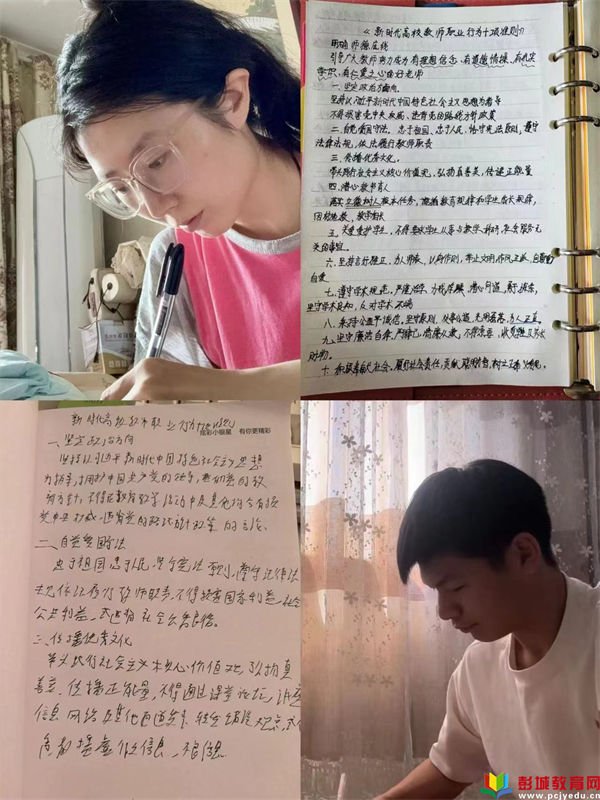 《新时代高校教师职业行为十项准则》
明确师德底线
引导广大教师努力成为有理想信念、有道德情操、有扎实
学识、有仁爱之心的好老师
一、坚定政治方向
坚持以习近平新时代中国特色社会主义思想为指导
不得损害党中央权威、违背党的路线方针政策
二、自觉爱国守法，忠于祖国，忠于人民，恪守宪法原则，遵守
法律法规，依法履行教师职责
三、传播优秀文化。
带头践行社会主义核心价值观，弘扬真善美，传递正能量
四、潜心教书育人
落实立德树人根本任务，遵循教育规律和学生成长规律，
因材施教，教学相长
五、关心爱护学生，不得要求学生从事与教学、科研、社会服务无
关的事宜。
六、坚持言行雅正，为人师表，以身作则，举止文明，作风正派，自重
自爱
七、遵守学术规范，严谨治学，力戒浮躁，潜心问道，勇于探索，
坚守学术良知，反对学术不端
八、秉持公平诚信，坚守原则，处事公道，光明磊落，为人正直。
九、坚守廉洁自律，严于律己，清廉从教，不得索要、收受
财物。
十、积极奉献社会，履行社会责任，贡献聪明才智，树立正确
新时代高校教师职业行为
炫彩小眼星 有你更精彩
一、坚定政治方向
坚持以习近平新时代中国特色社会主义思想
为指导，拥护中国共产党的领导，贯彻党的教
育方针，不得在教育教学活动中及其他场合有损
害党中央权威、违背党的路线方针政策的言论。
二、自觉爱国守法
忠于祖国，忠于人民，恪守宪法原则，遵守法律法
规，依法履行教师职责，不得损害国家利益、社会
公共利益，或违背社会公序良俗。
三、传播优秀文化
带头践行社会主义核心价值观，弘扬真
善美，传播正能量，不得通过课堂、论坛、讲座
信息网络及其他渠道发表、转发错误观点，或
虚假信息、不良信息
彭城教育网
www.pcjyedu.cn